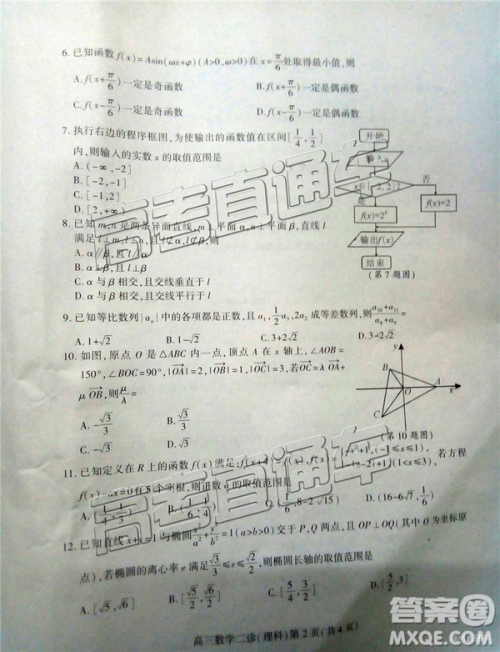 6. 已知函数 f(x)=Asin(ωx+φ)(A>0,ω>0)在 x=π/6 处取得最小值,则
A. f(x+π/6)一定是奇函数 B. f(x+π/6)一定是偶函数
C. f(x-π/6)一定是奇函数 D. f(x-π/6)一定是偶函数
7. 执行右边的程序框图,为使输出的函数值在区间[1/4,1/2]
内,则输入的实数 x 的取值范围是
A. (-∞,-2]
B. [-2,-1]
C. [-1,2]
D. [2,+∞)
开始
输入
x∈[-2,2]?
是 否
f(x)=2ˣ f(x)=2
输出f(x)
结束
(第 7 题图)
8. 已知 m,n 是两条异面直线,m⊥平面 α,n⊥平面 β,直线 l
满足 l⊥m,l⊥n,且 l⊄α,l⊄β,则
A. α∥β 且 l∥α
B. α⊥β,且 l⊥β
C. α 与 β 相交,且交线垂直于 l
D. α 与 β 相交,且交线平行于 l
9. 已知等比数列{aₙ}中的各项都是正数,且 a₁,1/2 a₃,2a₂ 成等差列,则
A. 1+√2 B. 1-√2 C. 3+2√2 D. 3-2√2
10. 如图,原点 O 是△ABC 内一点,顶点 A 在 x 轴上,∠AOB=
150°,∠BOC=90°,|OA|=2,|OB|=1,|OC|=3,若OC=λ OA+
μ OB,则μ/λ=
A. -√3/3 B. √3/3
C. -√3 D. √3
y
B
O A x
C
(第 10 题图)
11. 已知定义在 R 上的函数 f(x)满足: 若方程
f(x)-ax=0有5个实根,则正数 a 的取值范围是
D. (16-6√7,1/6)
12. 已知直线 x+y=1 与椭圆x²/a²+y²/b²=1(a>b>0)交于 P,Q 两点,且 OP⊥OQ(其中 O 为坐标原
点),若椭圆的离心率 e 满足√3/3≤e≤√2/2,则椭圆长轴的取值范围是
A. [√5,√6]
高三数学二诊(理科)第 2 页(共 4 页)
高考直通车
高考直通车
答案圈